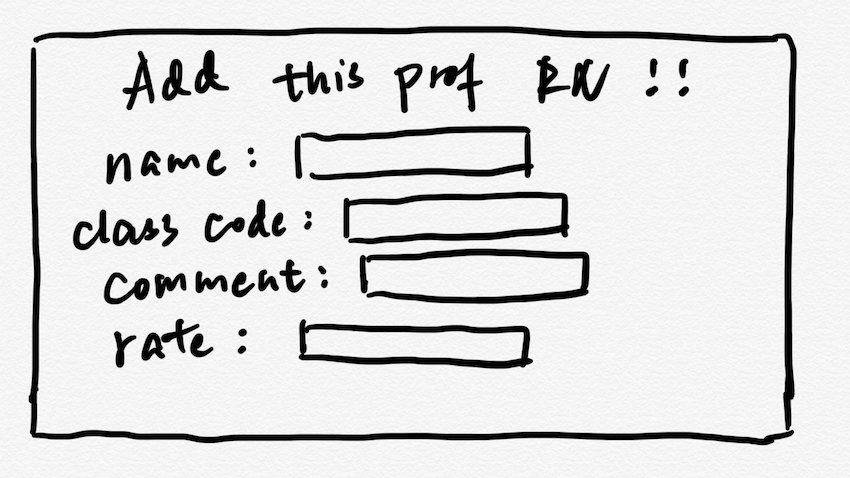 Add this prof RN !!
name :
class code :
comment :
rate :